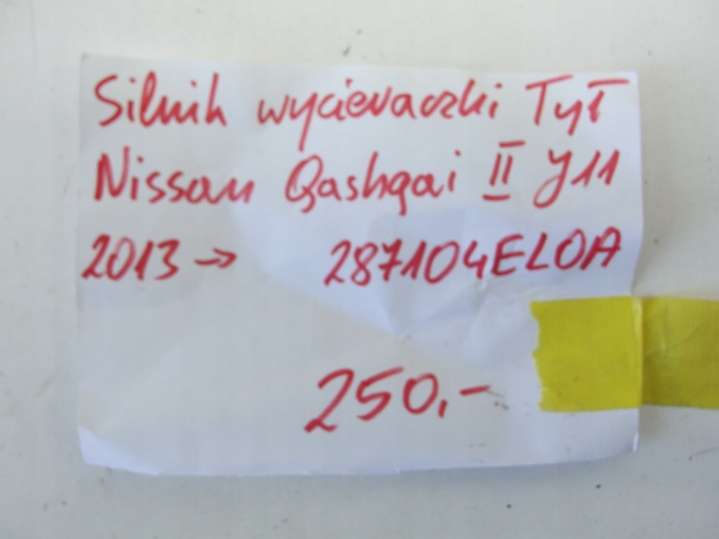 Silnik wycieraczki Tył
Nissan Qashqai II J11
2013 → 287104EL0A
250,-